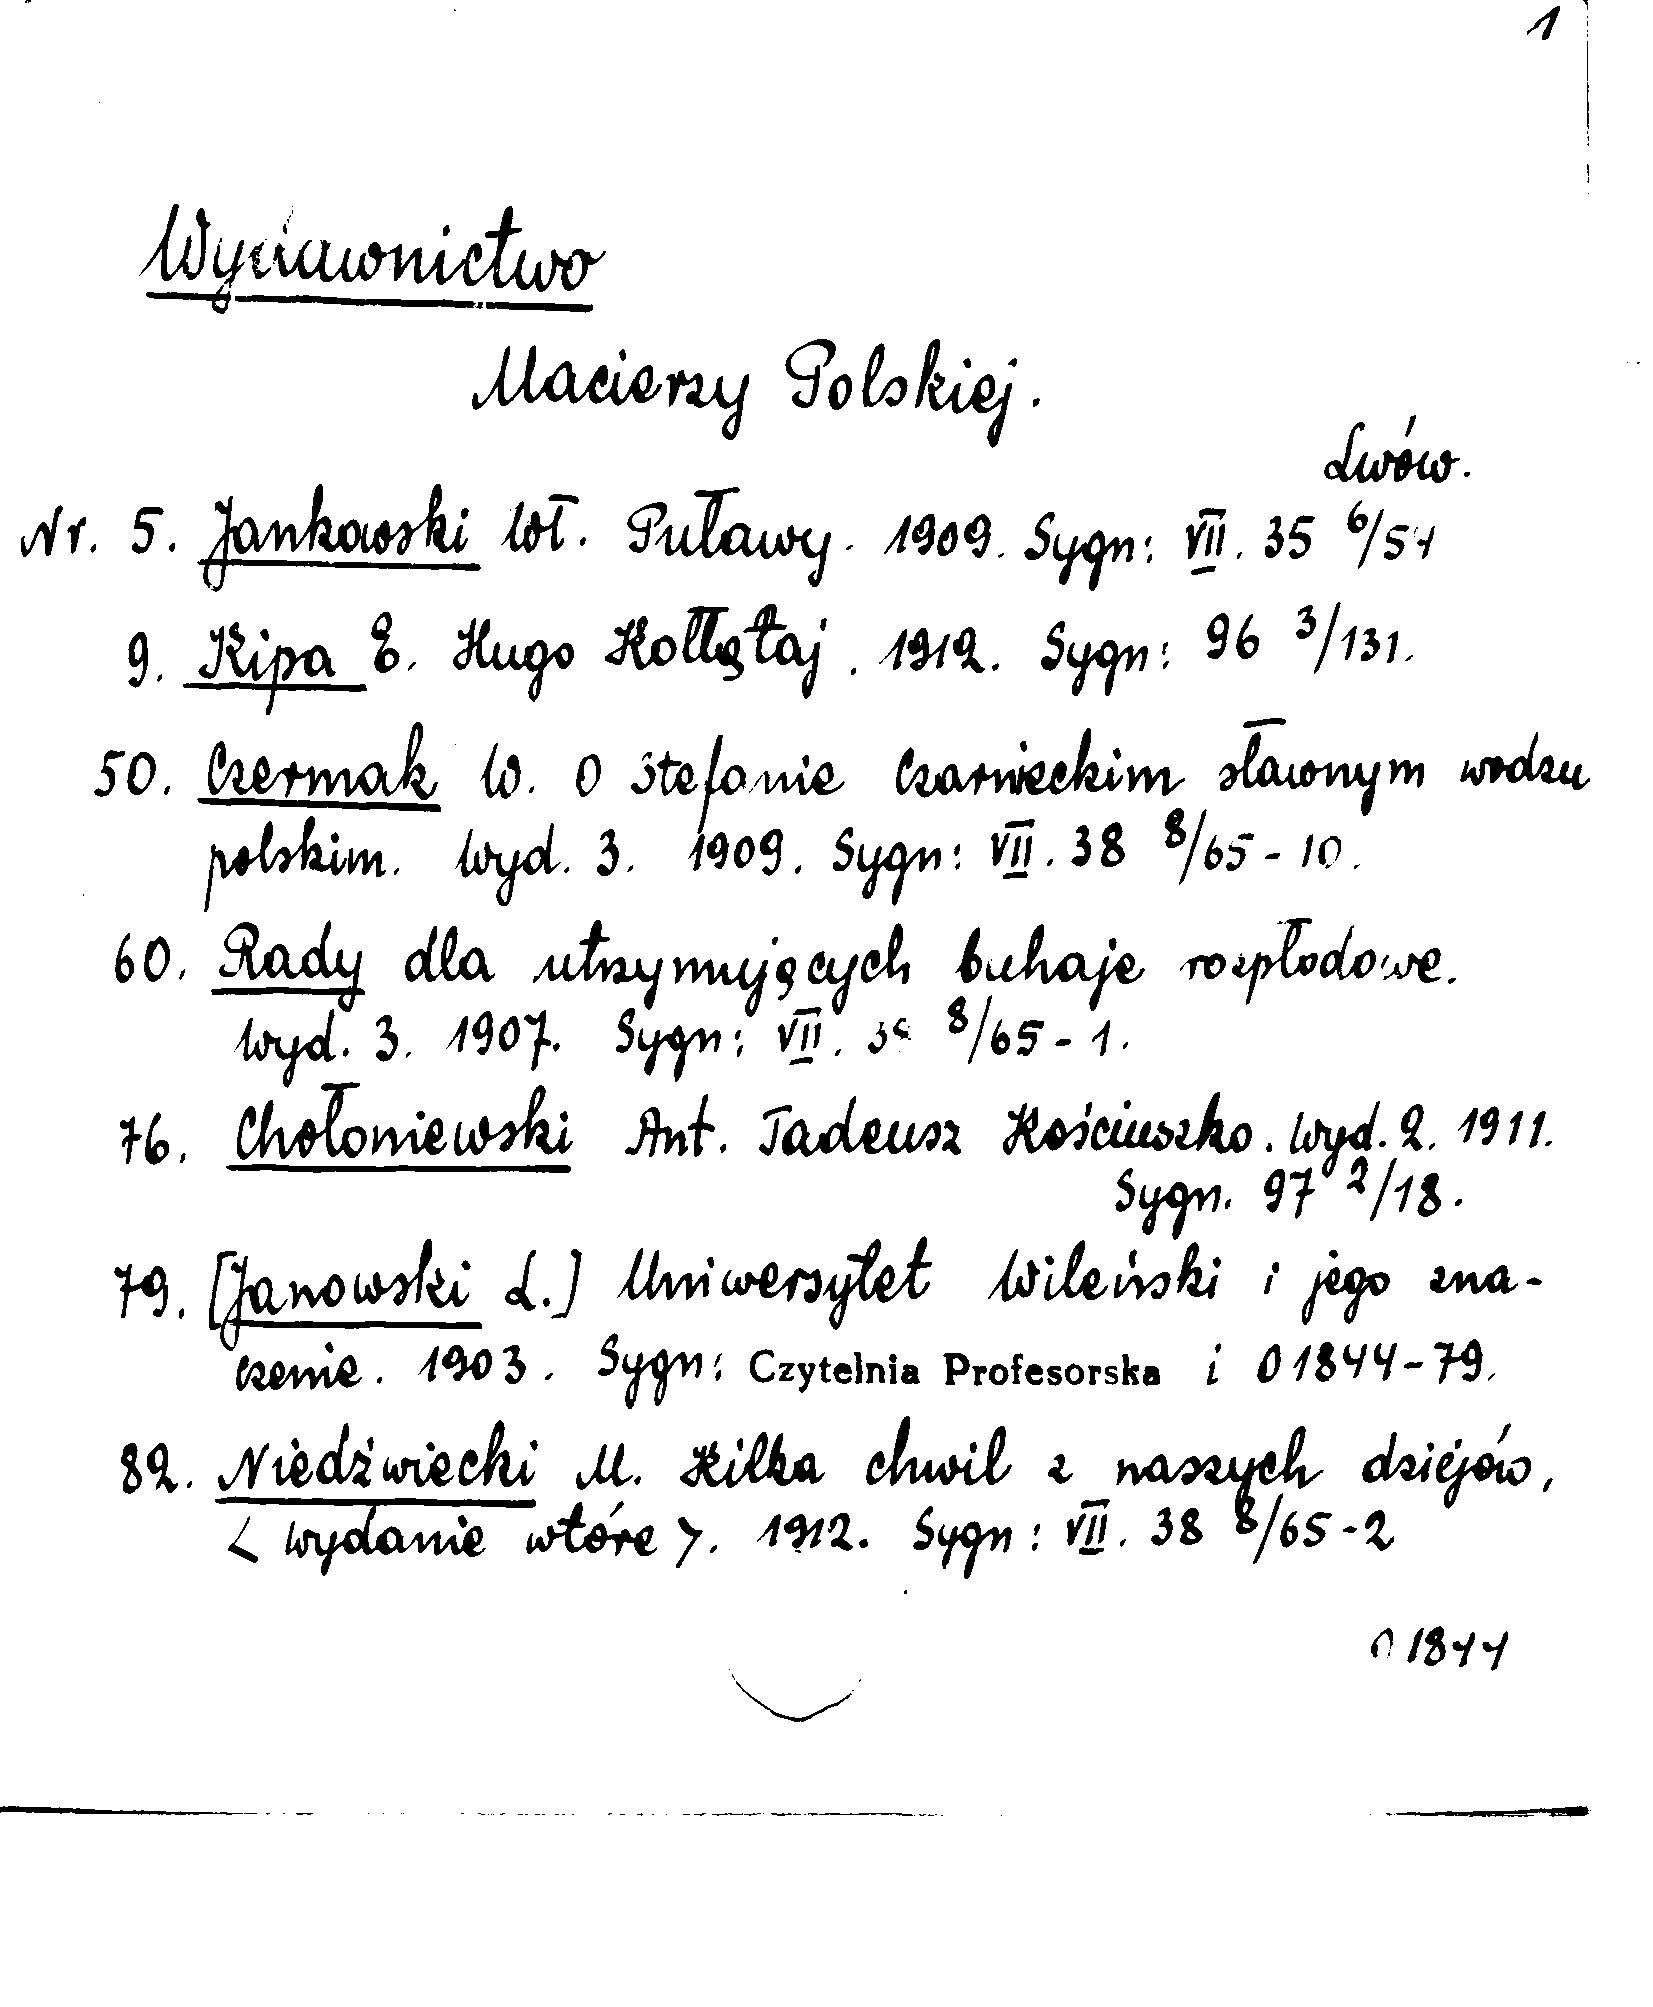 1
Wydawnictwo
Macierzy Polskiej.
Lwów.
Nr. 5. Jankowski Wł. Puławy. 1909. Sygn: VII. 35 6/54
9. Kipa E. Hugo Kołłątaj. 1912. Sygn: 96 3/131.
50. Czermak W. O Stefanie Czarnieckim sławnym wodzu
polskim. Wyd. 3. 1909. Sygn: VII. 38 8/65-10.
60. Rady dla utrzymujących buhaje rozpłodowe.
Wyd. 3. 1907. Sygn: VII. 8/65-1.
76. Chołoniewski Ant. Tadeusz Kościuszko. Wyd. 2. 1911.
Sygn. 97 2/18.
79. [Janowski L.] Uniwersytet Wileński i jego zna-
czenie. 1903. Sygn: Czytelnia Profesorska i 01844-79.
82. Niedźwiecki M. Kilka chwil z naszych dziejów,
< wydanie wtóre >. 1912. Sygn: VII. 38 8/65-2
01844